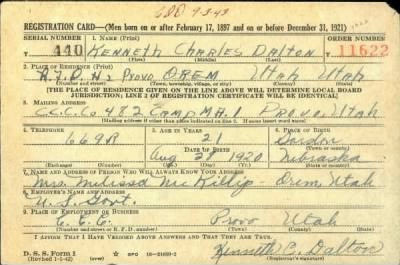 SCB 9-3-43
REGISTRATION CARD—(Men born on or after February 17, 1897 and on or before December 31, 1921)
SERIAL NUMBER 1. NAME (Print) ORDER NUMBER
440 KENNETH CHARLES DALTON 11622
(First) (Middle) (Last)
2. PLACE OF RESIDENCE (Print)
R.F.D. Provo OREM Utah Utah
(Number and street) (Town, township, village, or city) (County) (State)
[THE PLACE OF RESIDENCE GIVEN ON THE LINE ABOVE WILL DETERMINE LOCAL BOARD
JURISDICTION; LINE 2 OF REGISTRATION CERTIFICATE WILL BE IDENTICAL]
3. MAILING ADDRESS
C.C.C. Co 482 Camp Provo, Utah
(Mailing address if other than place indicated on line 2. If same insert word same)
4. TELEPHONE 5. AGE IN YEARS 6. PLACE OF BIRTH
669R 21 Gordon
DATE OF BIRTH (Town or county)
Aug 28 1920 Nebraska
(Exchange) (Number) (Mo.) (Day) (Yr.) (State or country)
7. NAME AND ADDRESS OF PERSON WHO WILL ALWAYS KNOW YOUR ADDRESS
Mrs. Melissa McKillip - Orem, Utah
8. EMPLOYER'S NAME AND ADDRESS
U.S. Govt.
9. PLACE OF EMPLOYMENT OR BUSINESS
C.C.C. Provo Utah
(Number and street or R. F. D. number) (Town) (County) (State)
I AFFIRM THAT I HAVE VERIFIED ABOVE ANSWERS AND THAT THEY ARE TRUE.
D. S. S. Form 1 Kenneth C. Dalton
(Revised 1-1-42) (over) GPO 16—21630-2 (Registrant's signature)